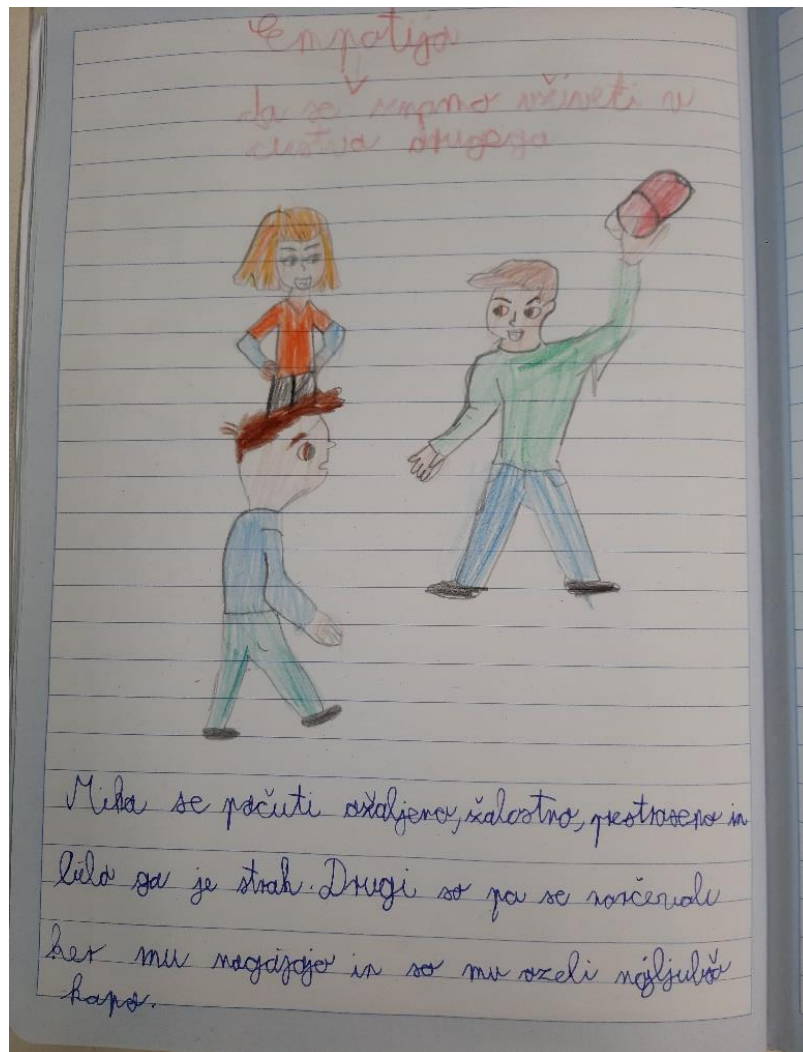 Empatija
da se znamo vživeti v
čustva drugega
Miha se počuti ožaljeno, žalostno, prestrašeno in
bilo ga je strah. Drugi so pa se norčevali
ker mu nagajajo in so mu vzeli najljubšo
kapo.